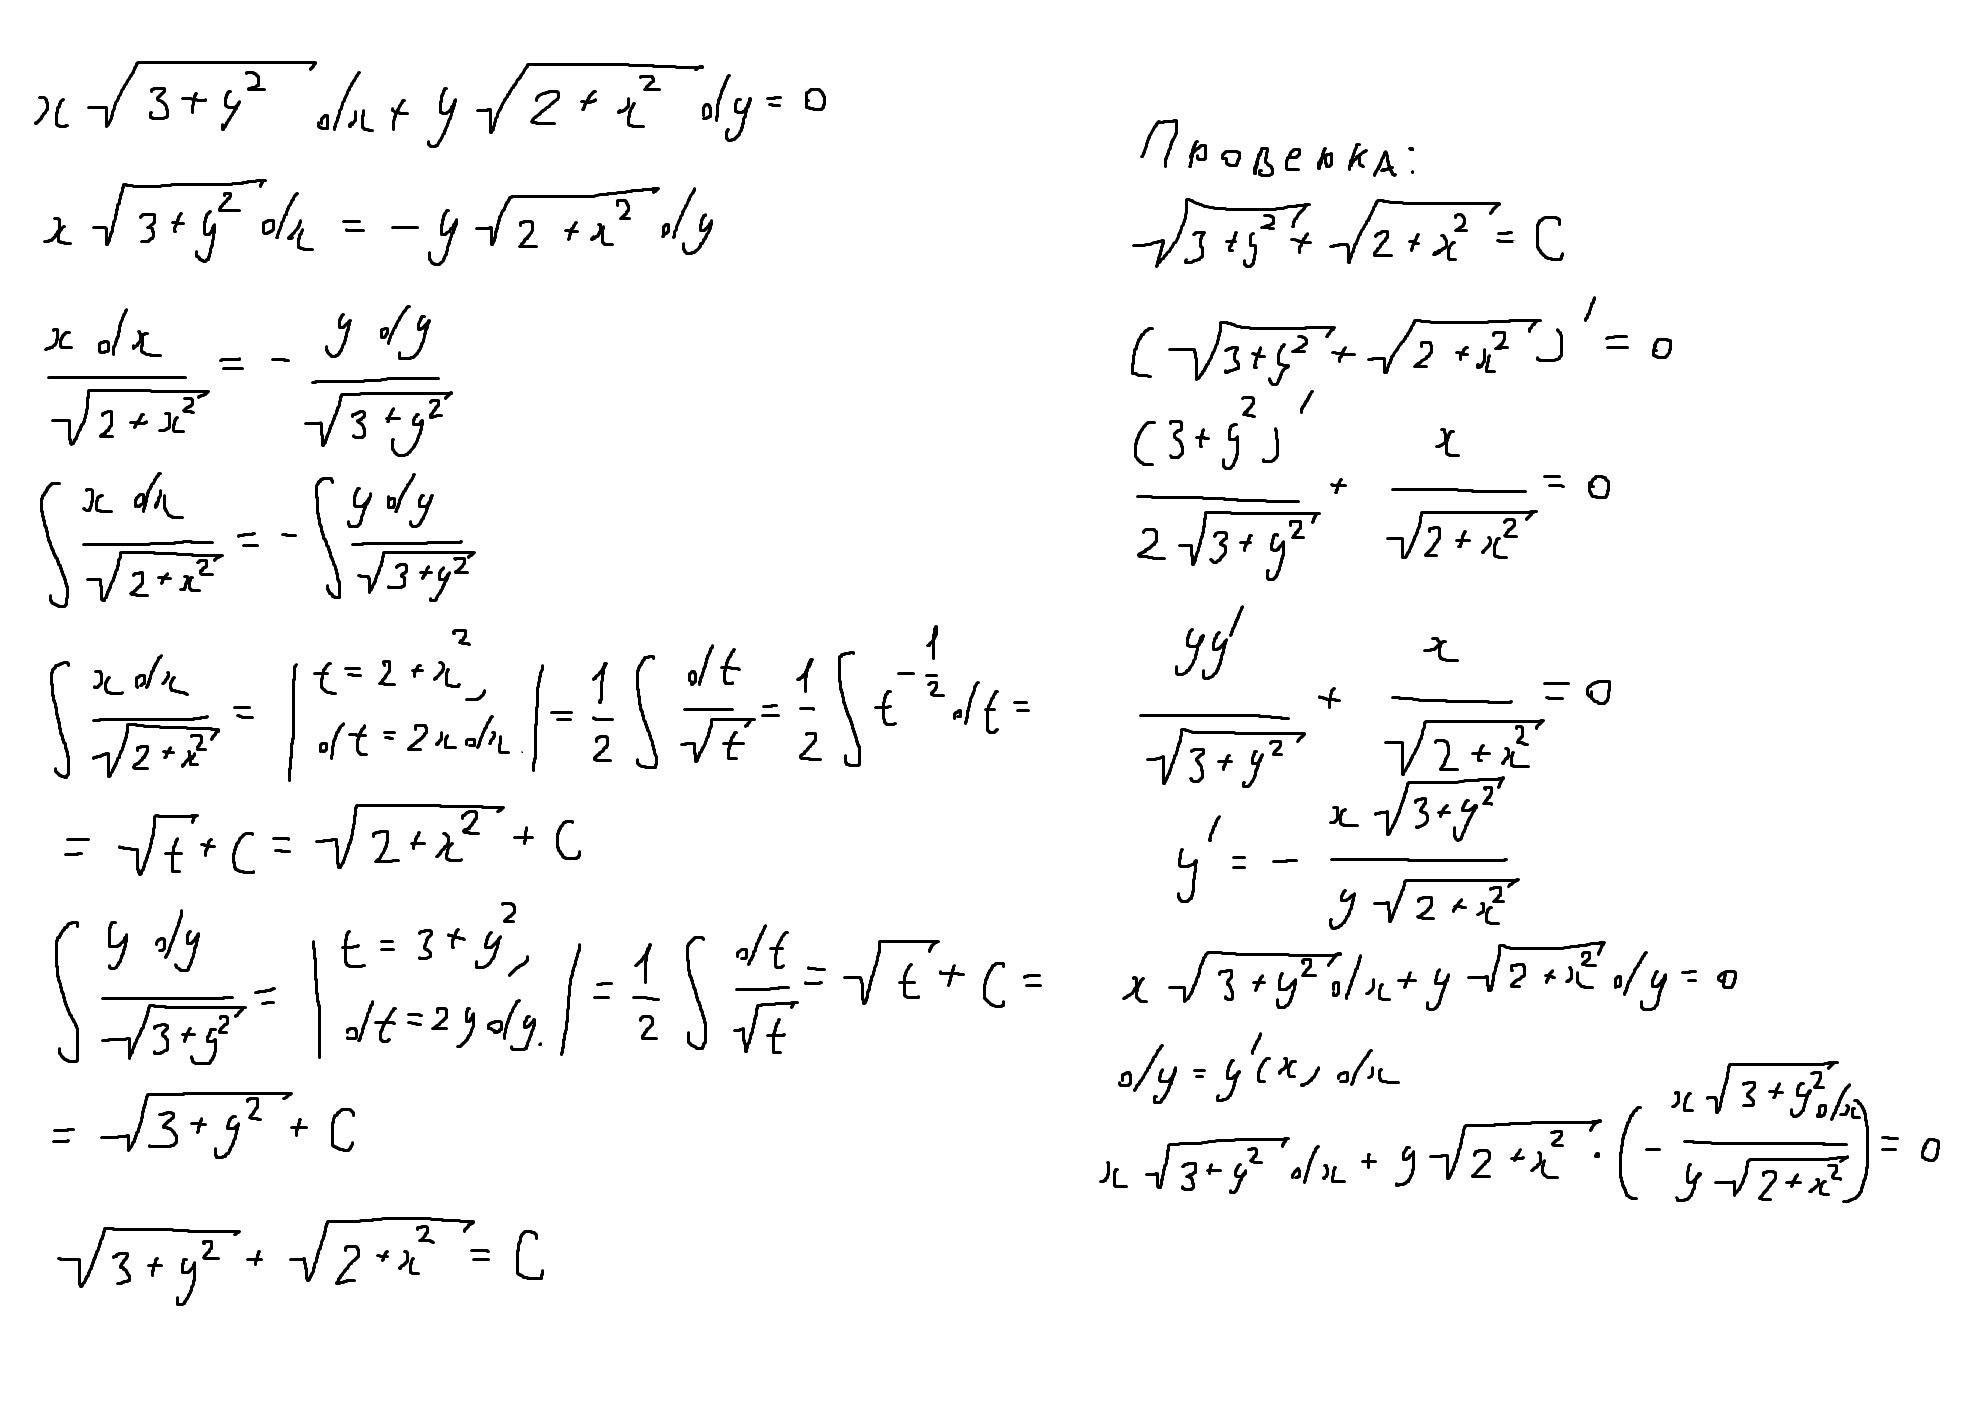 x√(3+y²) dx + y√(2+x²) dy = 0
x√(3+y²) dx = -y√(2+x²) dy
x dx / √(2+x²) = - y dy / √(3+y²)
∫ x dx / √(2+x²) = - ∫ y dy / √(3+y²)
∫ x dx / √(2+x²) = | t = 2+x², dt = 2x dx. | = 1/2 ∫ dt/√t = 1/2 ∫ t^(-1/2) dt =
= √t + C = √(2+x²) + C
∫ y dy / √(3+y²) = | t = 3+y², dt = 2y dy. | = 1/2 ∫ dt/√t = √t + C =
= √(3+y²) + C
√(3+y²) + √(2+x²) = C
Проверка:
√(3+y²) + √(2+x²) = C
(√(3+y²) + √(2+x²))' = 0
(3+y²)' / 2√(3+y²) + x / √(2+x²) = 0
yy' / √(3+y²) + x / √(2+x²) = 0
y' = - x√(3+y²) / y√(2+x²)
x√(3+y²) dx + y√(2+x²) dy = 0
dy = y'(x) dx
x√(3+y²) dx + y√(2+x²) · (- x√(3+y²) dx / y√(2+x²)) = 0